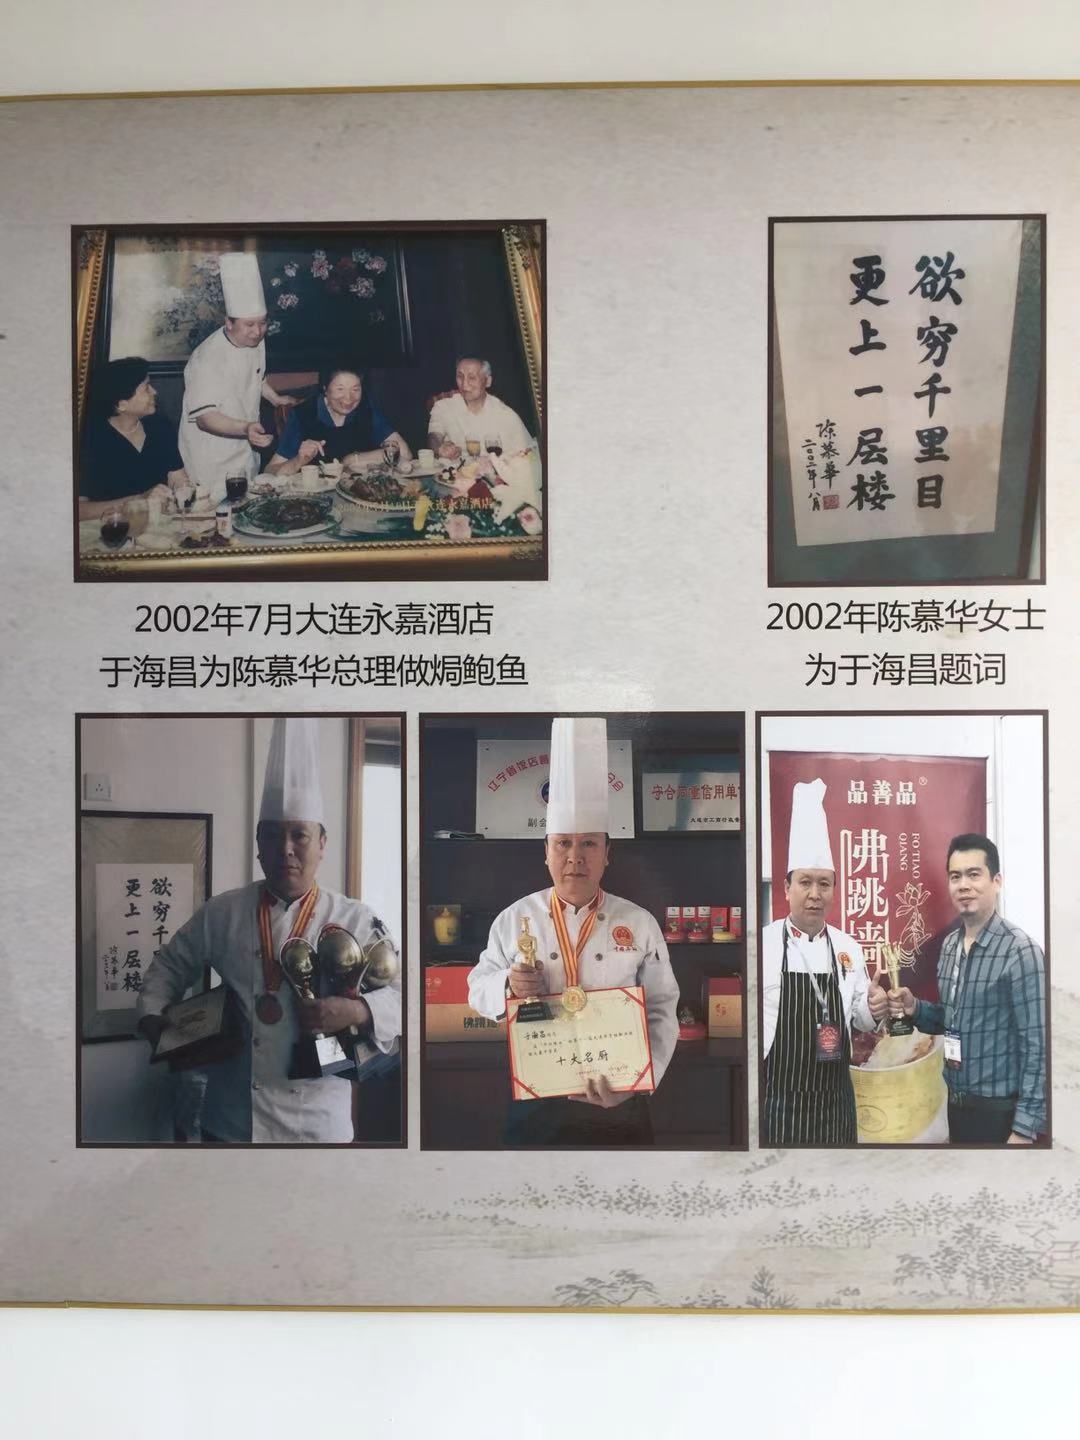 欲穷千里目
更上一层楼
陈慕华
二〇〇二年八月
2002年7月大连永嘉酒店
于海昌为陈慕华总理做焗鲍鱼
2002年陈慕华女士
为于海昌题词
欲穷千
更上一层楼
陈慕华
辽宁省饭店
副会
守合同重信用单
大连市工商行政
佛跳墙
于海昌
十大名厨
品善品®
佛跳墙
FO TIAO
QIANG